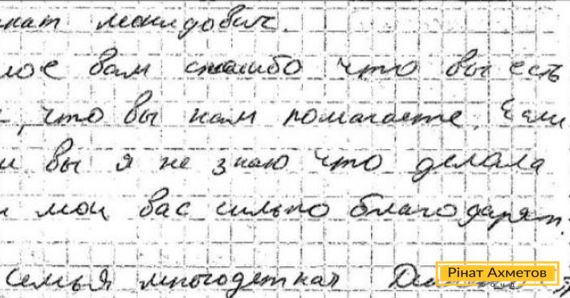 нат леонидович.
лое вам спасибо что вы есть
, что вы нам помагаете. Если
вы я не знаю что делала
мои вас сильно благодарят.
семья многодетная
Рінат Ахметов